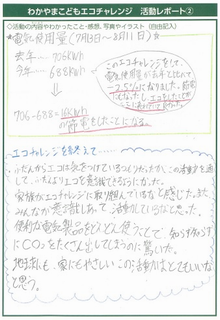 わかやまこどもエコチャレンジ 活動レポート②
◇活動の内容やわかったこと・感想、写真やイラスト (自由記入)
☆電気使用量 (7月13日~8月11日)☆
去年… 706kWh
今年… 688kWh
このエコチャレンジをして、
電気使用量が去年と比べて
706-688=18kWh
の節電をしたことになる。
エコチャレンジを終えて……
ふだんからエコは気をつけているつもりだったが、この活動を通
して、ふだんよりエコを意識してできるようになった。
家族がエコチャレンジに取り組んでいるなと感じた。また
みんなが意識しあって、活動していると思った。
便利な電気製品をどんどん使うことで、知らず知らず
にCO₂をたくさん出してしまうのに驚いた。
地球にも、家にもやさしいこの活動はとてもいいな
と思う。